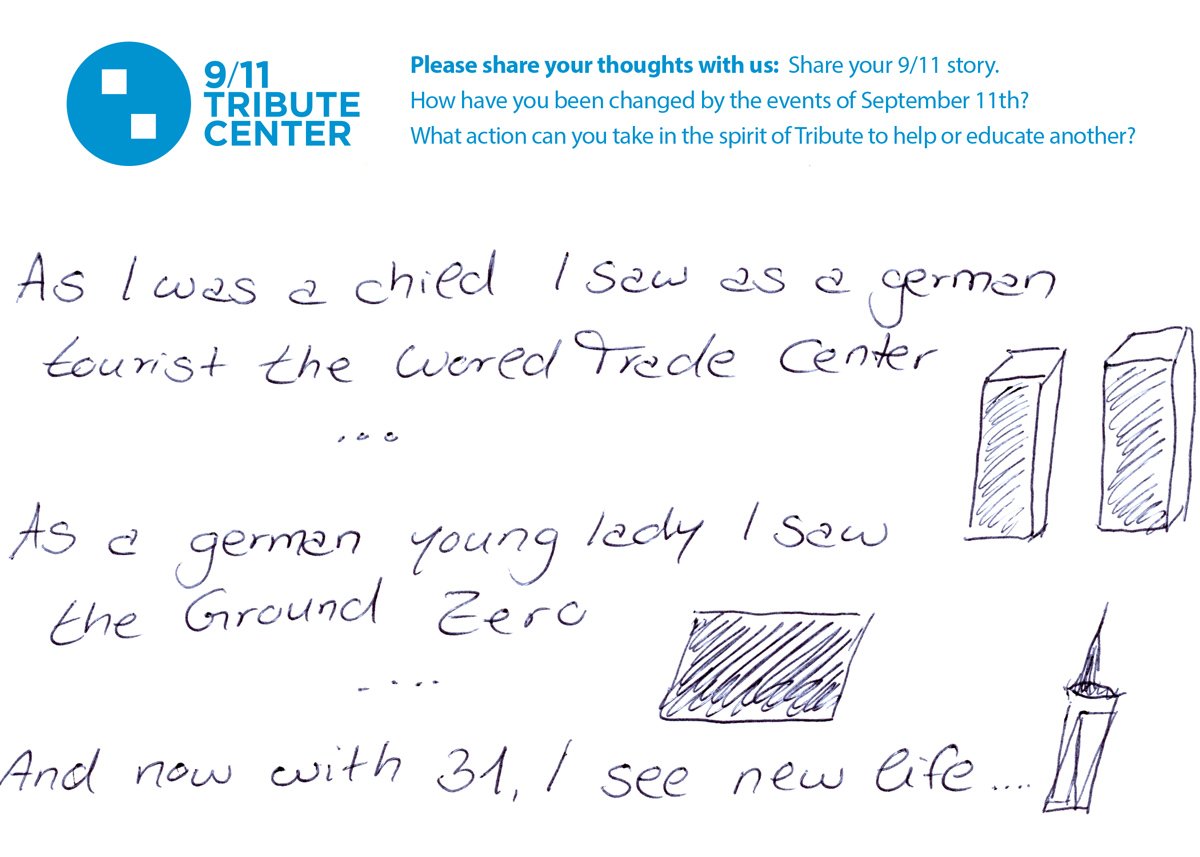 9/11
TRIBUTE
CENTER
Please share your thoughts with us: Share your 9/11 story.
How have you been changed by the events of September 11th?
What action can you take in the spirit of Tribute to help or educate another?
As I was a child I saw as a german
tourist the World Trade Center
...
As a german young lady I saw
the Ground Zero
....
And now with 31, I see new life....